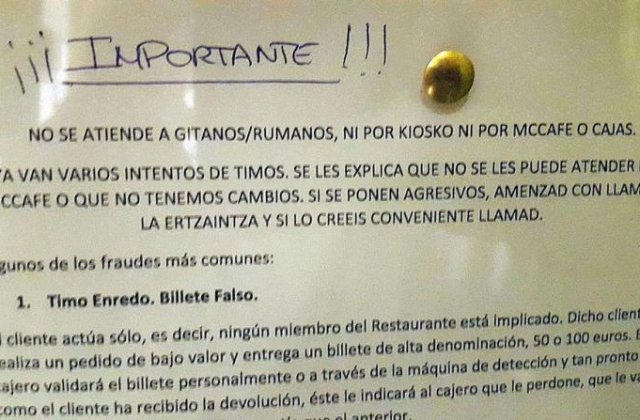 ¡¡¡ IMPORTANTE !!!
NO SE ATIENDE A GITANOS/RUMANOS, NI POR KIOSKO NI POR MCCAFE O CAJAS.
YA VAN VARIOS INTENTOS DE TIMOS. SE LES EXPLICA QUE NO SE LES PUEDE ATENDER
CCAFE O QUE NO TENEMOS CAMBIOS. SI SE PONEN AGRESIVOS, AMENZAD CON LLAM
LA ERTZAINTZA Y SI LO CREEIS CONVENIENTE LLAMAD.
gunos de los fraudes más comunes:
1. Timo Enredo. Billete Falso.
l cliente actúa sólo, es decir, ningún miembro del Restaurante está implicado. Dicho client
ealiza un pedido de bajo valor y entrega un billete de alta denominación, 50 o 100 euros. E
cajero validará el billete personalmente o a través de la máquina de detección y tan pronto
como el cliente ha recibido la devolución, éste le indicará al cajero que le perdone, que le va
que el anterior.